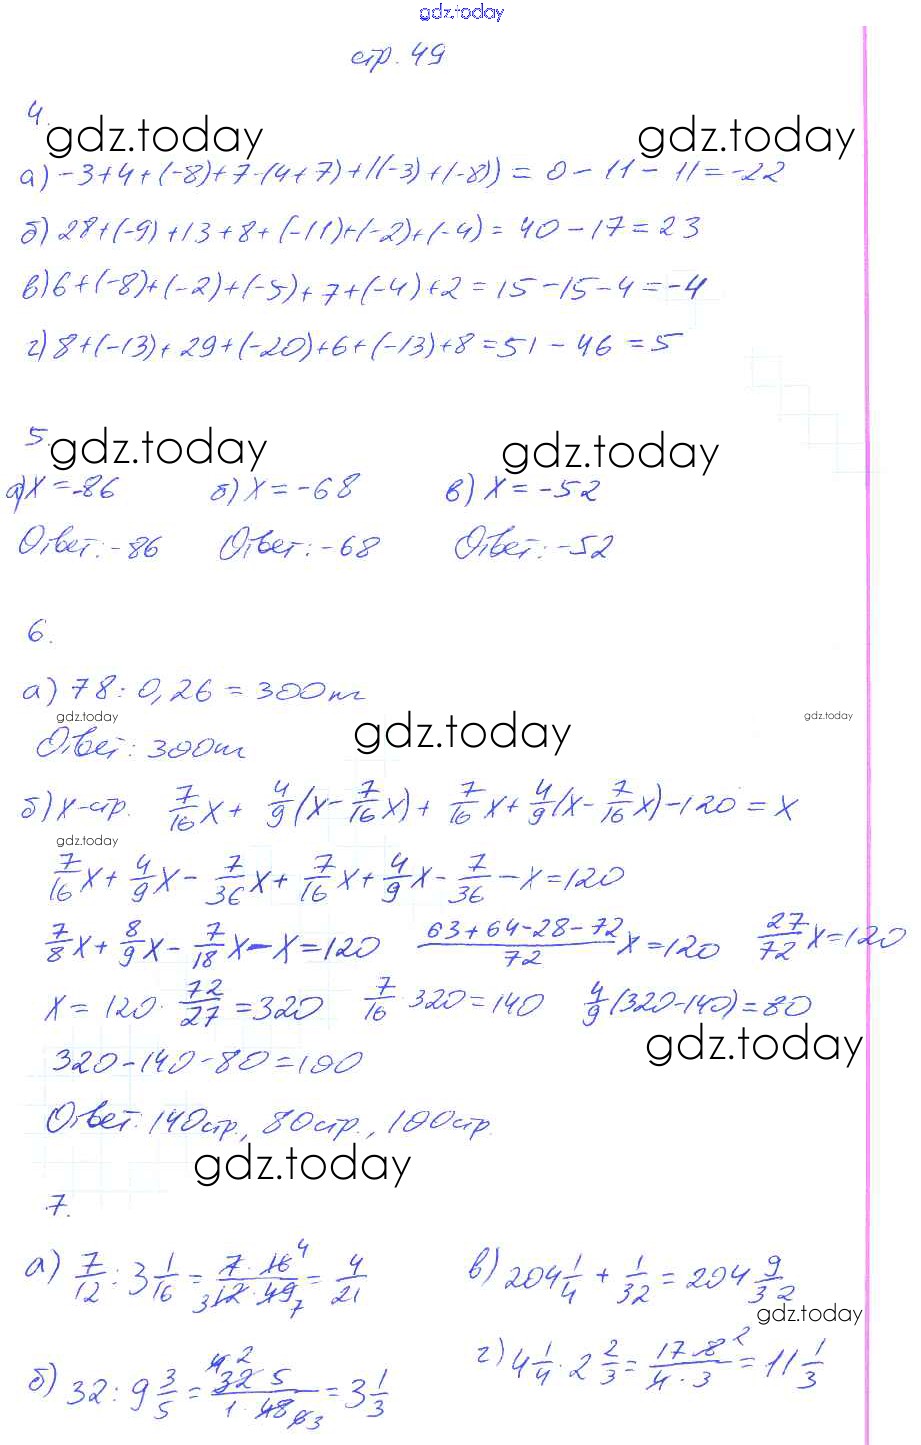 gdz.today
стр. 49
4.
gdz.today gdz.today
а) -3+4+(-8)+7-(4+7)+((-3)+(-8)) = 0-11-11=-22
б) 28+(-9)+13+8+(-11)+(-2)+(-4)=40-17=23
в) 6+(-8)+(-2)+(-5)+7+(-4)+2=15-15-4=-4
г) 8+(-13)+29+(-20)+6+(-13)+8=51-46=5
5.
gdz.today gdz.today
а) x=-86 б) x=-68 в) x=-52
Ответ: -86 Ответ: -68 Ответ: -52
6.
а) 78:0,26=300т
gdz.today gdz.today gdz.today
Ответ: 300т
б) x-стр. 7/16x+ 4/9(x-7/16x)+ 7/16x+4/9(x-7/16x)-120=x
gdz.today
7/16x+4/9x-7/36x+7/16x+4/9x-7/36-x=120
7/8x+8/9x-7/18x-x=120 (63+64-28-72)/72x=120 27/72x=120
x=120·72/27=320 7/16·320=140 4/9(320-140)=80
gdz.today
320-140-80=100
Ответ: 140стр., 80стр., 100стр.
gdz.today
7.
а) 7/12:3 1/16=7·16 4/3 12·49 7=4/21 в) 204 1/4+1/32=204 9/32
gdz.today
б) 32:9 3/5=4 2 32·5/1·48 6 3=3 1/3 г) 4 1/4·2 2/3=17·8 2/4·3=11 1/3